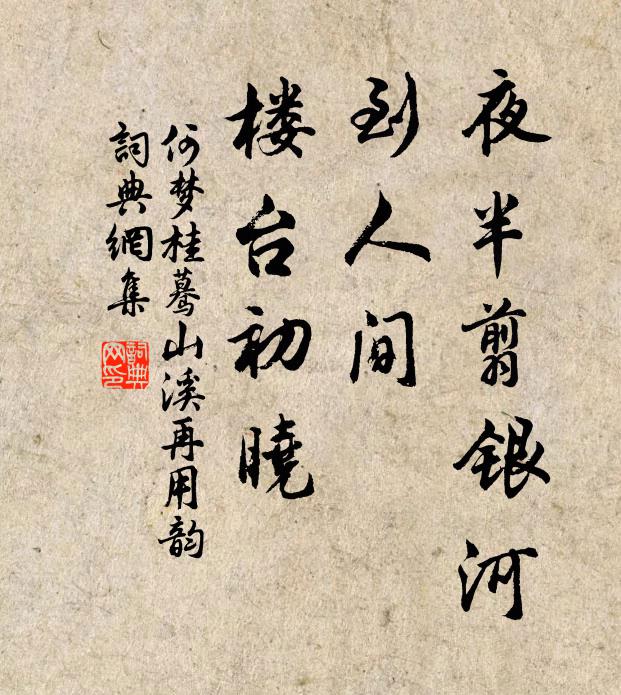 夜半翦银河
到人间
楼台初晓
何梦桂蓦山溪再用韵
詞典網集
詞典
网印